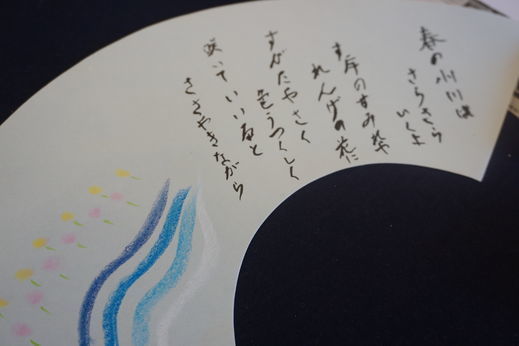 春の小川は
さらさら
いくよ
岸のすみれや
れんげの花に
すがたやさしく
色うつくしく
咲いているると
ささやきながら